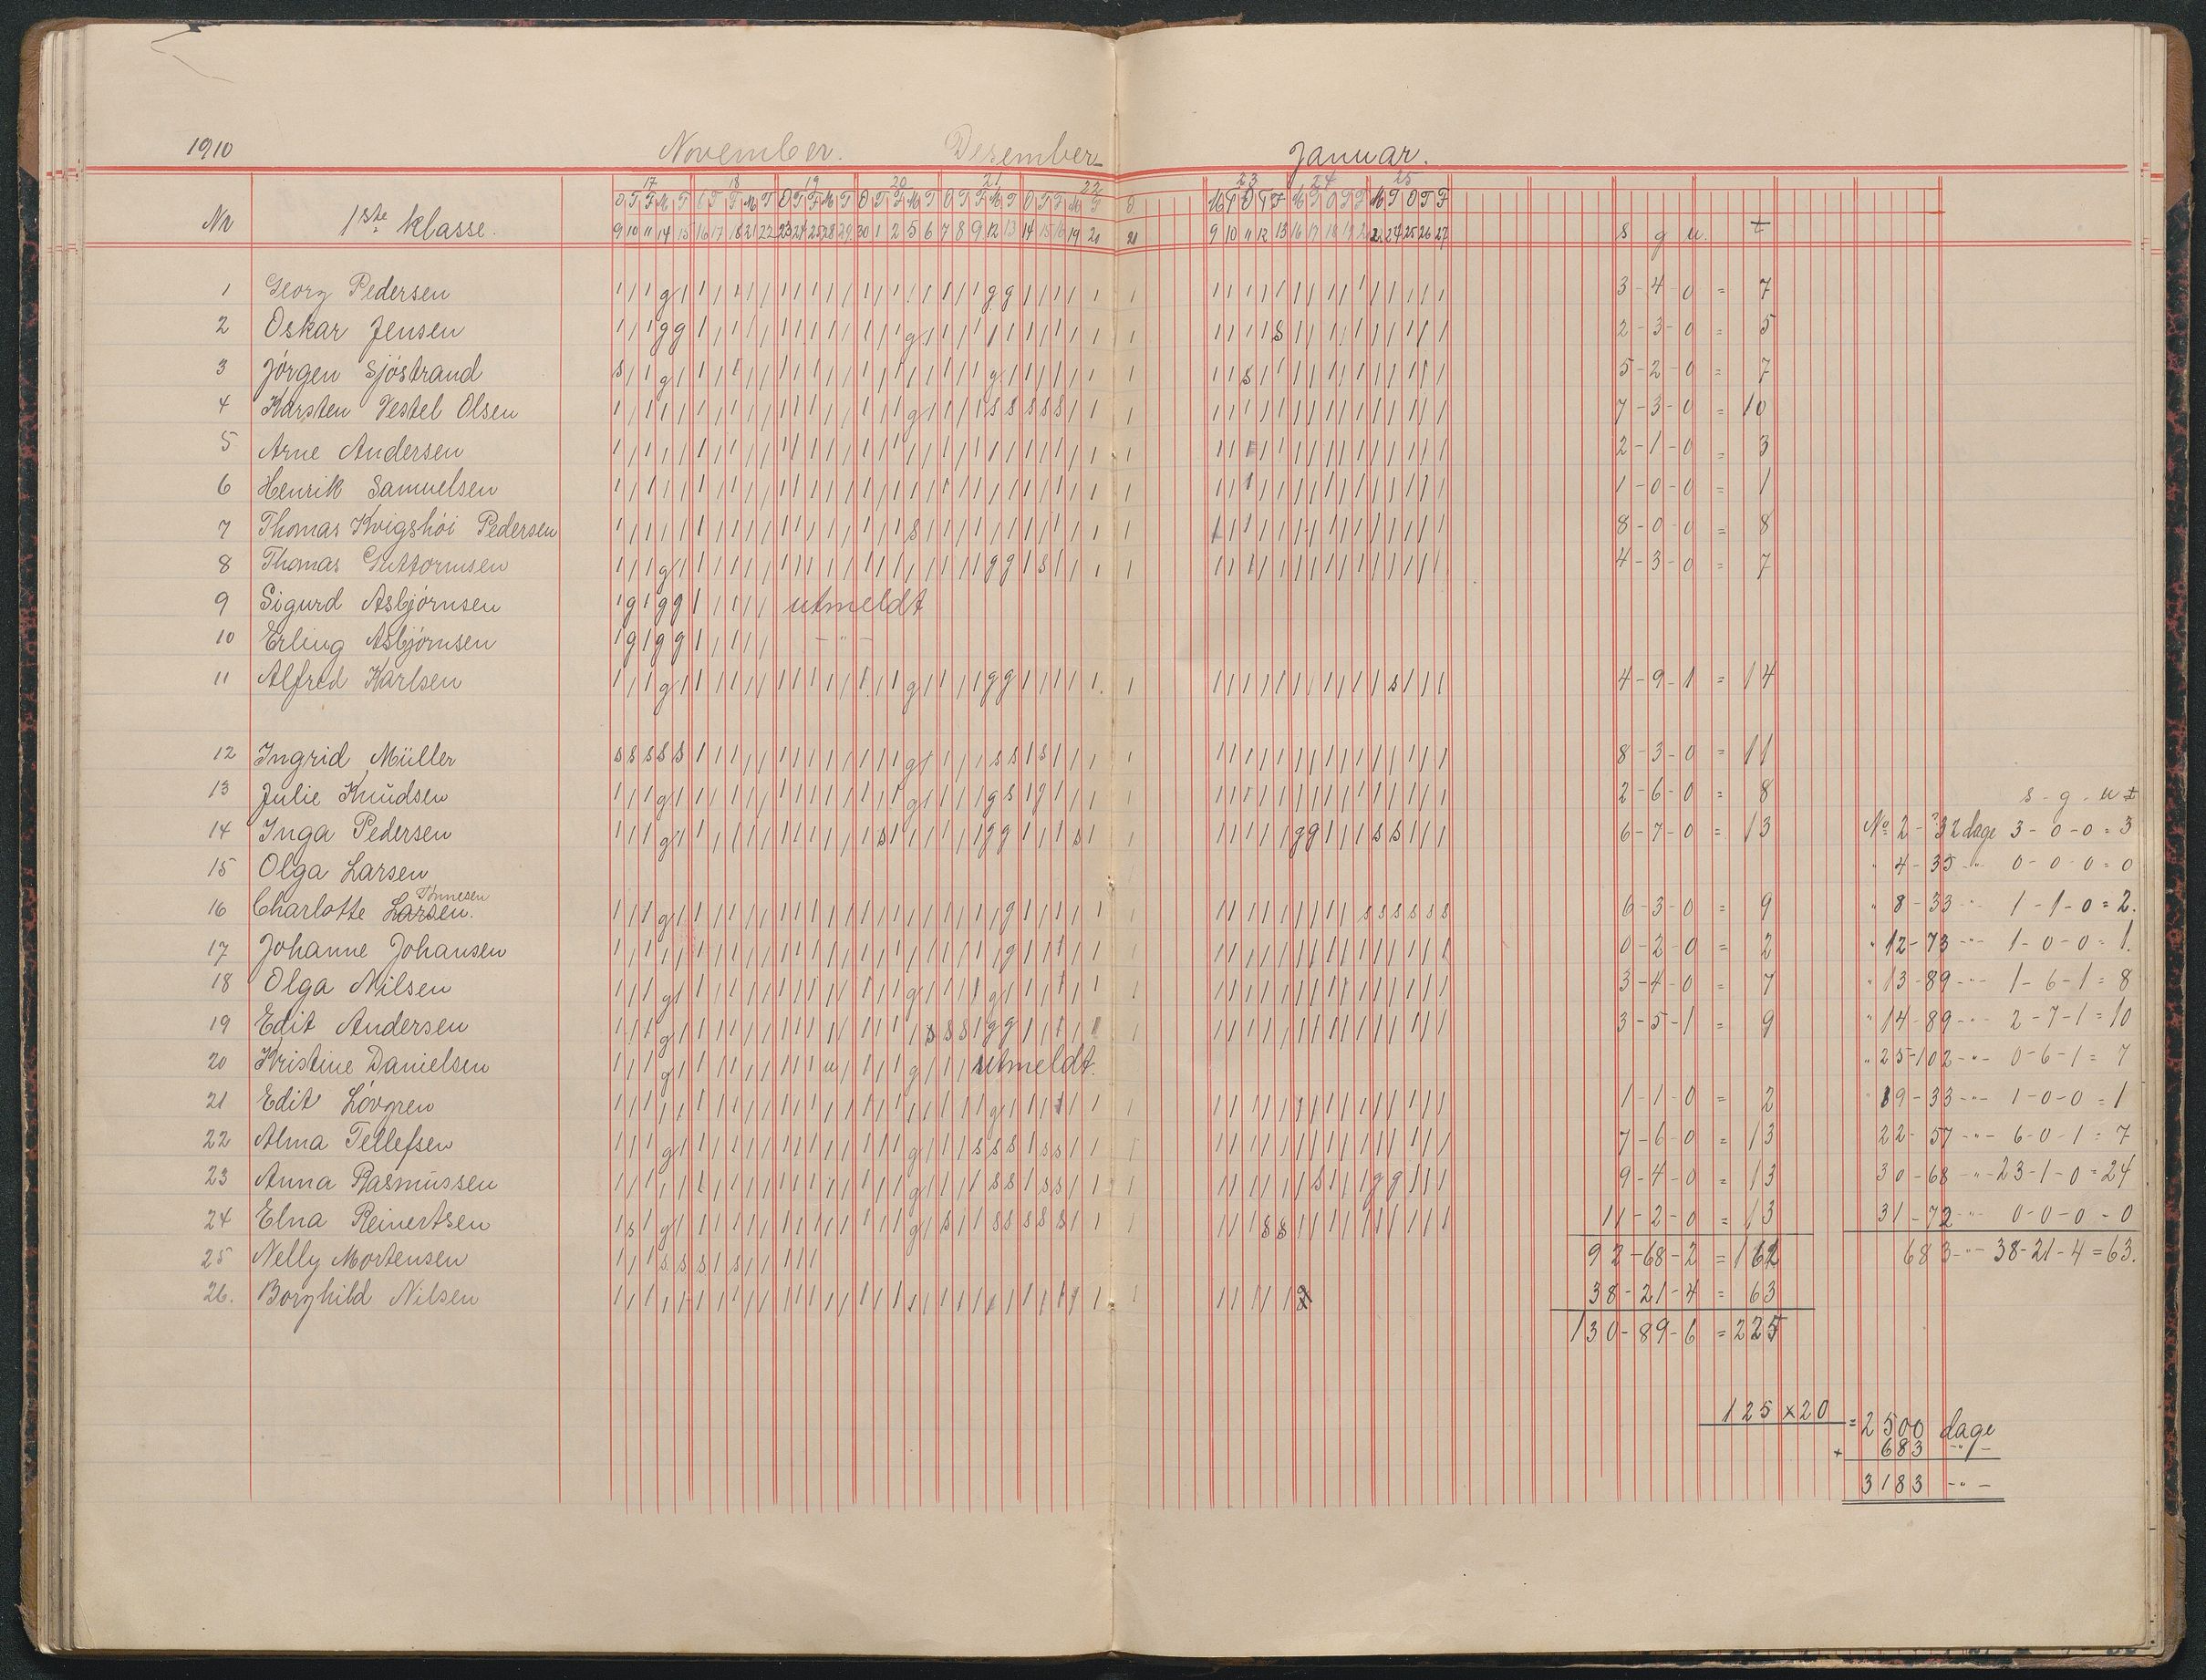 1910 November. Desember Januar.
17 18 19 20 21 22 23 24 25
O T F M T O T F M T O T F M T O T F M T O T F M T O T F M T O M T O T F M T O T F M T O T F
Nr 1ste klasse. 9 10 11 14 15 16 17 18 21 22 23 24 25 28 29 30 1 2 5 6 7 8 9 12 13 14 15 16 19 20 21 9 10 11 12 13 16 17 18 19 20 23 24 25 26 27 s g u. t
1 Georg Pedersen 3-4-0 = 7
2 Oskar Jensen 2-3-0 = 5
3 Jörgen Sjöstrand 5-2-0 = 7
4 Karsten Vestel Olsen 7-3-0 = 10
5 Arne Andersen 2-1-0 = 3
6 Henrik Samuelsen 1-0-0 = 1
7 Thomas Kvigshöi Pedersen 8-0-0 = 8
8 Thomas Guttormsen 4-3-0 = 7
9 Sigurd Asbjörnsen utmeldt
10 Erling Asbjörnsen -"-
11 Alfred Karlsen 4-9-1 = 14
12 Ingrid Müller 8-3-0 = 11
13 Julie Knudsen 2-6-0 = 8 s-g-u t
14 Inga Pedersen 6-7-0 = 13 No 2-32 dage 3-0-0 = 3
15 Olga Larsen " 4-35 -"- 0-0-0 = 0
16 Charlotte Larsen. Thnesen 6-3-0 = 9 " 8-33 -"- 1-1-0 = 2.
17 Johanne Johansen 0-2-0 = 2 " 12-73 -"- 1-0-0 = 1.
18 Olga Nilsen 3-4-0 = 7 " 13-89 -"- 1-6-1 = 8
19 Edit Andersen 3-5-1 = 9 " 14-89 -"- 2-7-1 = 10
20 Kristine Danielsen utmeldt. " 25-102 -"- 0-6-1 = 7
21 Edit Lövgren 1-1-0 = 2 " 19-33 -"- 1-0-0 = 1
22 Alma Tellefsen 7-6-0 = 13 22-57 -"- 6-0-1 = 7
23 Anna Rasmussen 9-4-0 = 13 30-68 -"- 23-1-0 = 24
24 Elna Reinertsen 11-2-0 = 13 31-72 -"- 0-0-0-0
25 Nelly Mortensen 92-68-2 = 162 683 -"- 38-21-4 = 63.
26. Borghild Nilsen 38-21-4 = 63
130-89-6 = 225
125 x 20 = 2500 dage
+ 683 -"-
3183 -"-